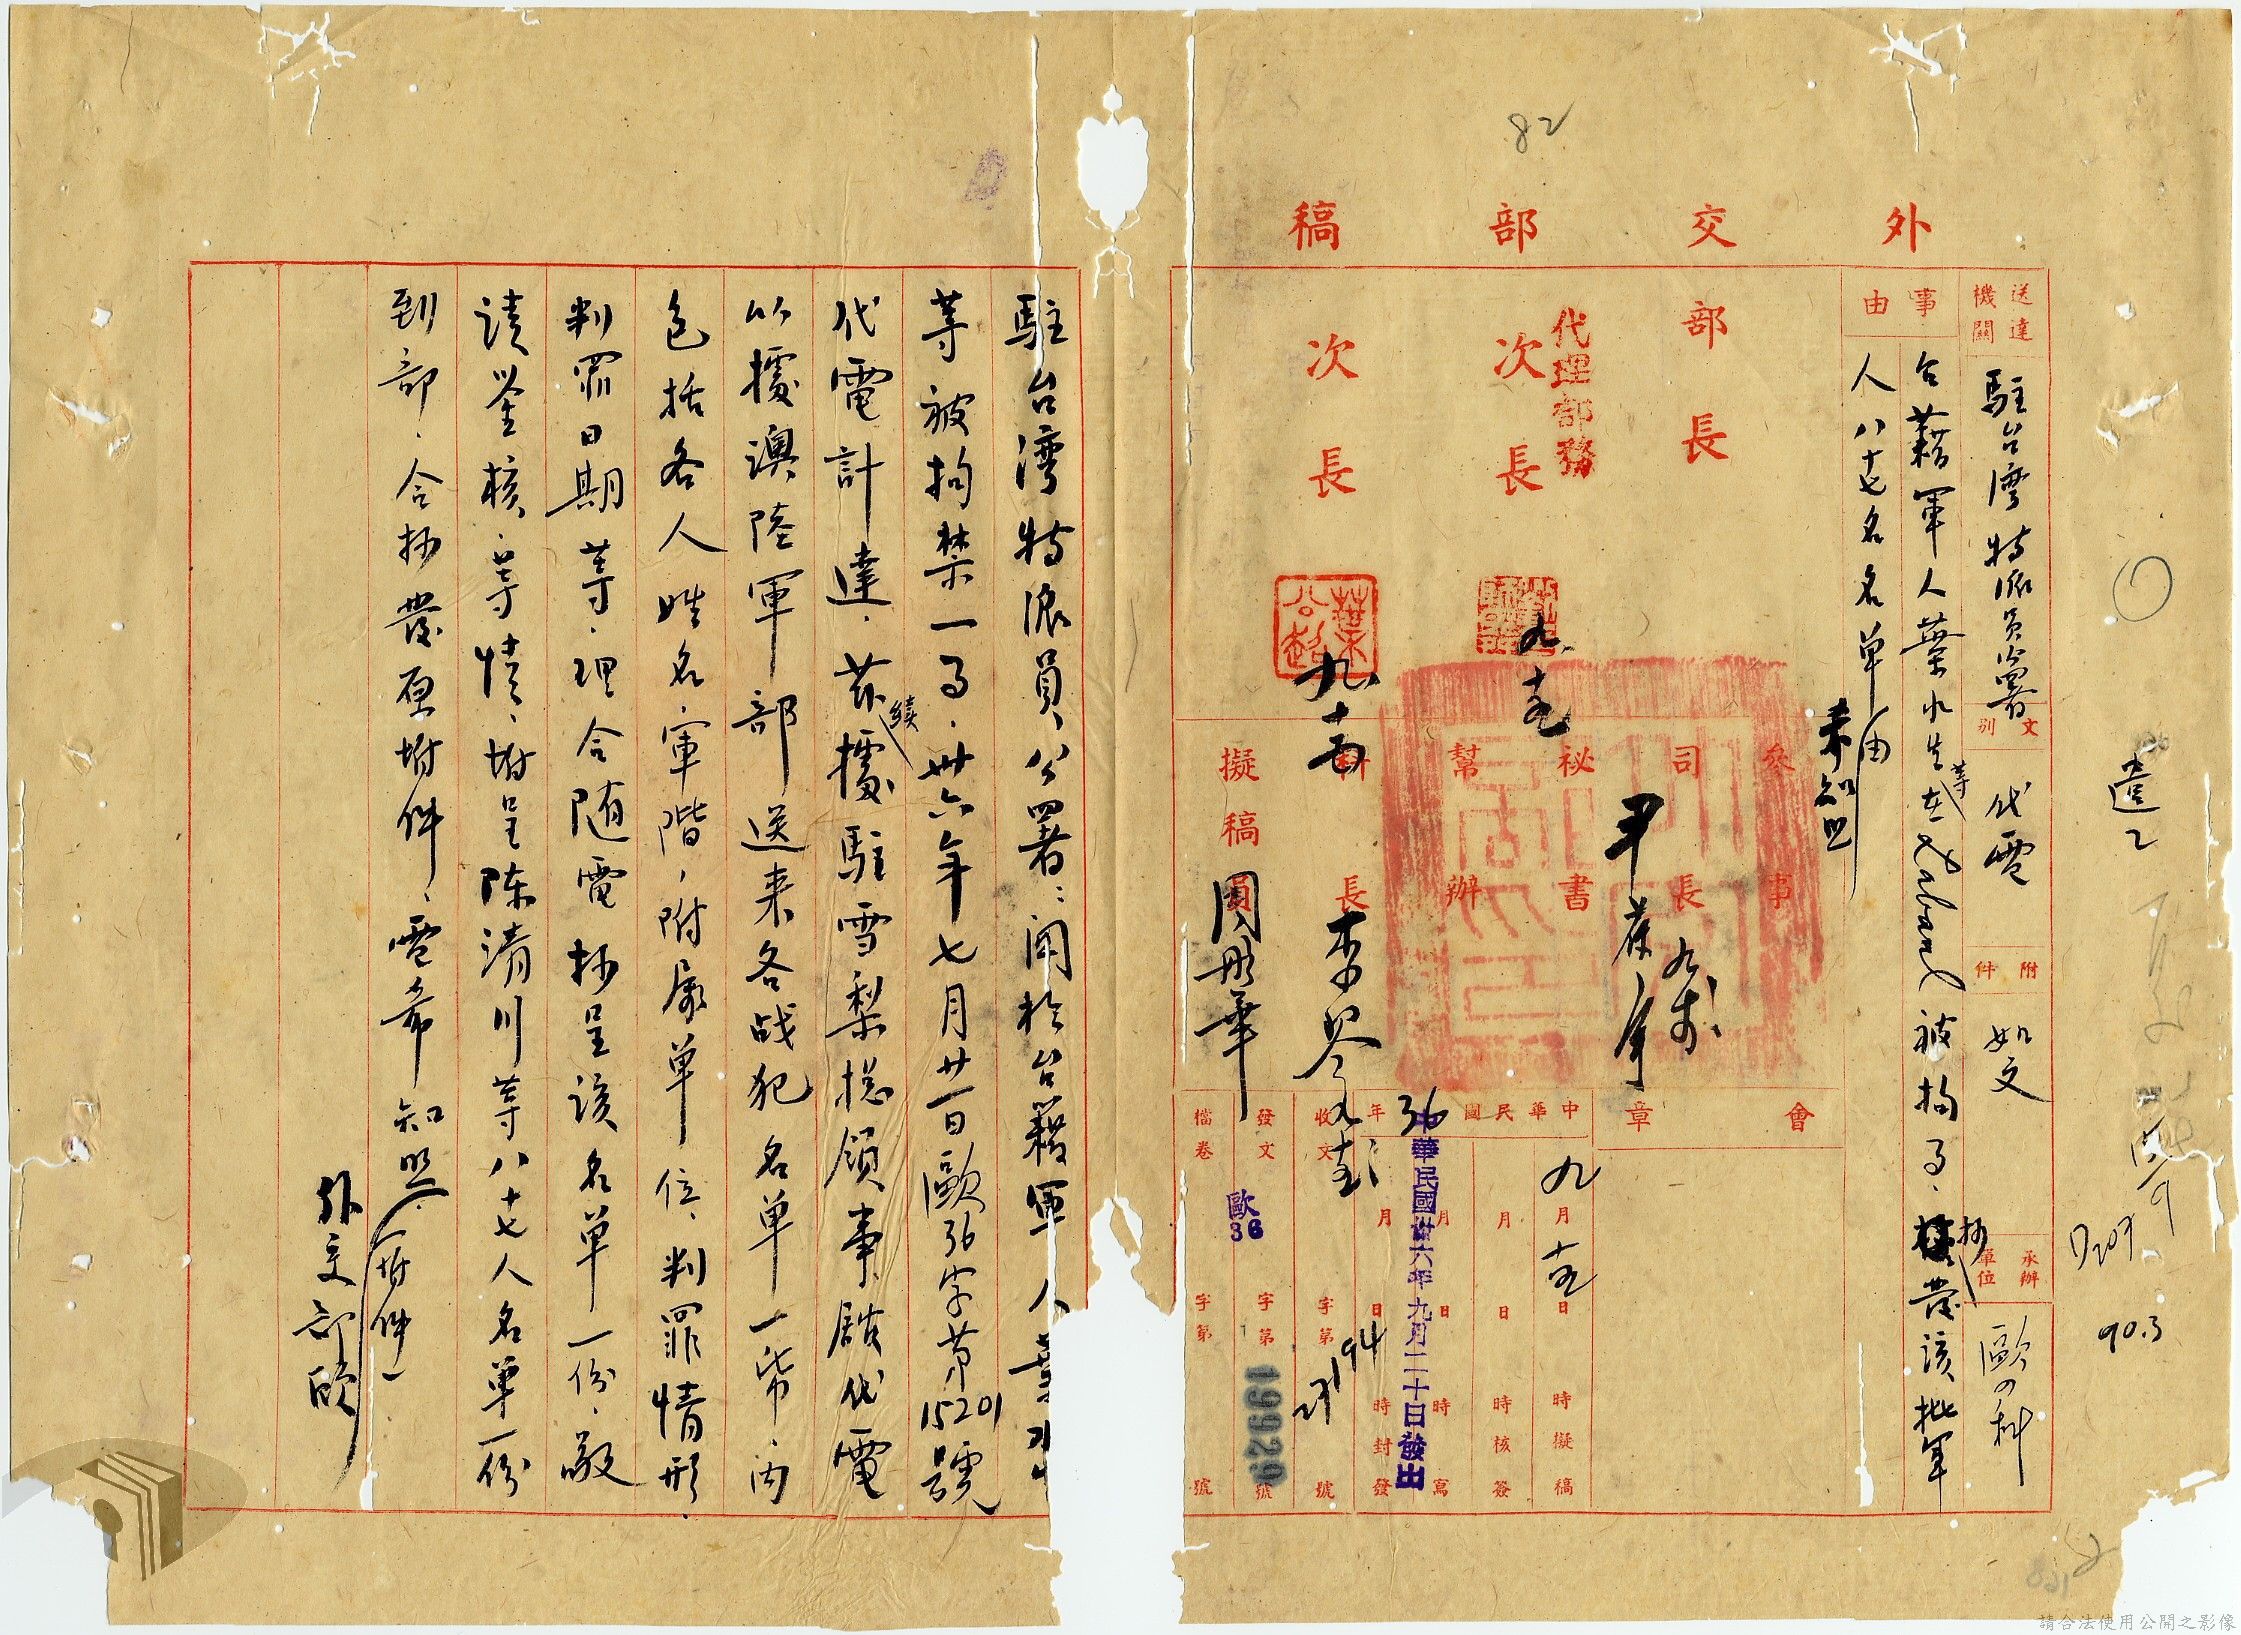 82
外交部稿
送達機關 駐台灣特派員公署
文別 代電
附件 如文
承辦單位 歐四科
事由 台籍軍人葉水生等在被拘事，抄發該批軍
人八十七名名單由
部長
代理部務
次長
次長
葉公超
九 十五
參事
司長
秘書
幫辦
科長
擬稿員 周彤華
會章
中華民國36年
九月十五日 時擬稿
月 日 時核簽
月 日 時寫
月 日 時封發
中華民國卅六年九月二十日發出
收文 字第 號
發文 歐36 字第19929號
檔卷 字第 號
194
90.3
駐台灣特派員公署：關於台籍軍人葉水
等被拘禁一事，卅六年七月廿一日歐36字第15201號
代電計達。茲續據駐雪梨總領事館代電
以據澳陸軍部送來各戰犯名單一紙，內
包括各人姓名，軍階，附屬單位，判罪情形，
判罪日期等，理合隨電抄呈該名單一份，敬
請鑒核，等情，附呈陳清川等八十七人名單一份
到部，合抄發原附件，電希知照。（附件）
外交部歐
請合法使用公開之影像